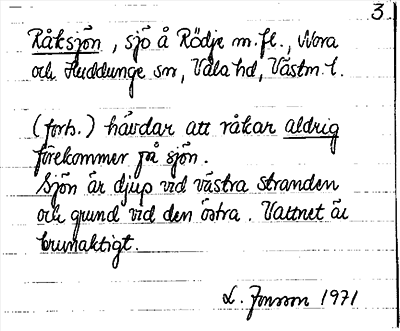 3.
Råksjön, sjö å Rödje m.fl., Nora
och Huddunge snr, Våla hd, Västm. l.
(forts.) hävdar att råkar aldrig
förekommer på sjön.
Sjön är djup vid västra stranden
och grund vid den östra. Vattnet är
brunaktigt.
L. Jonsson 1971